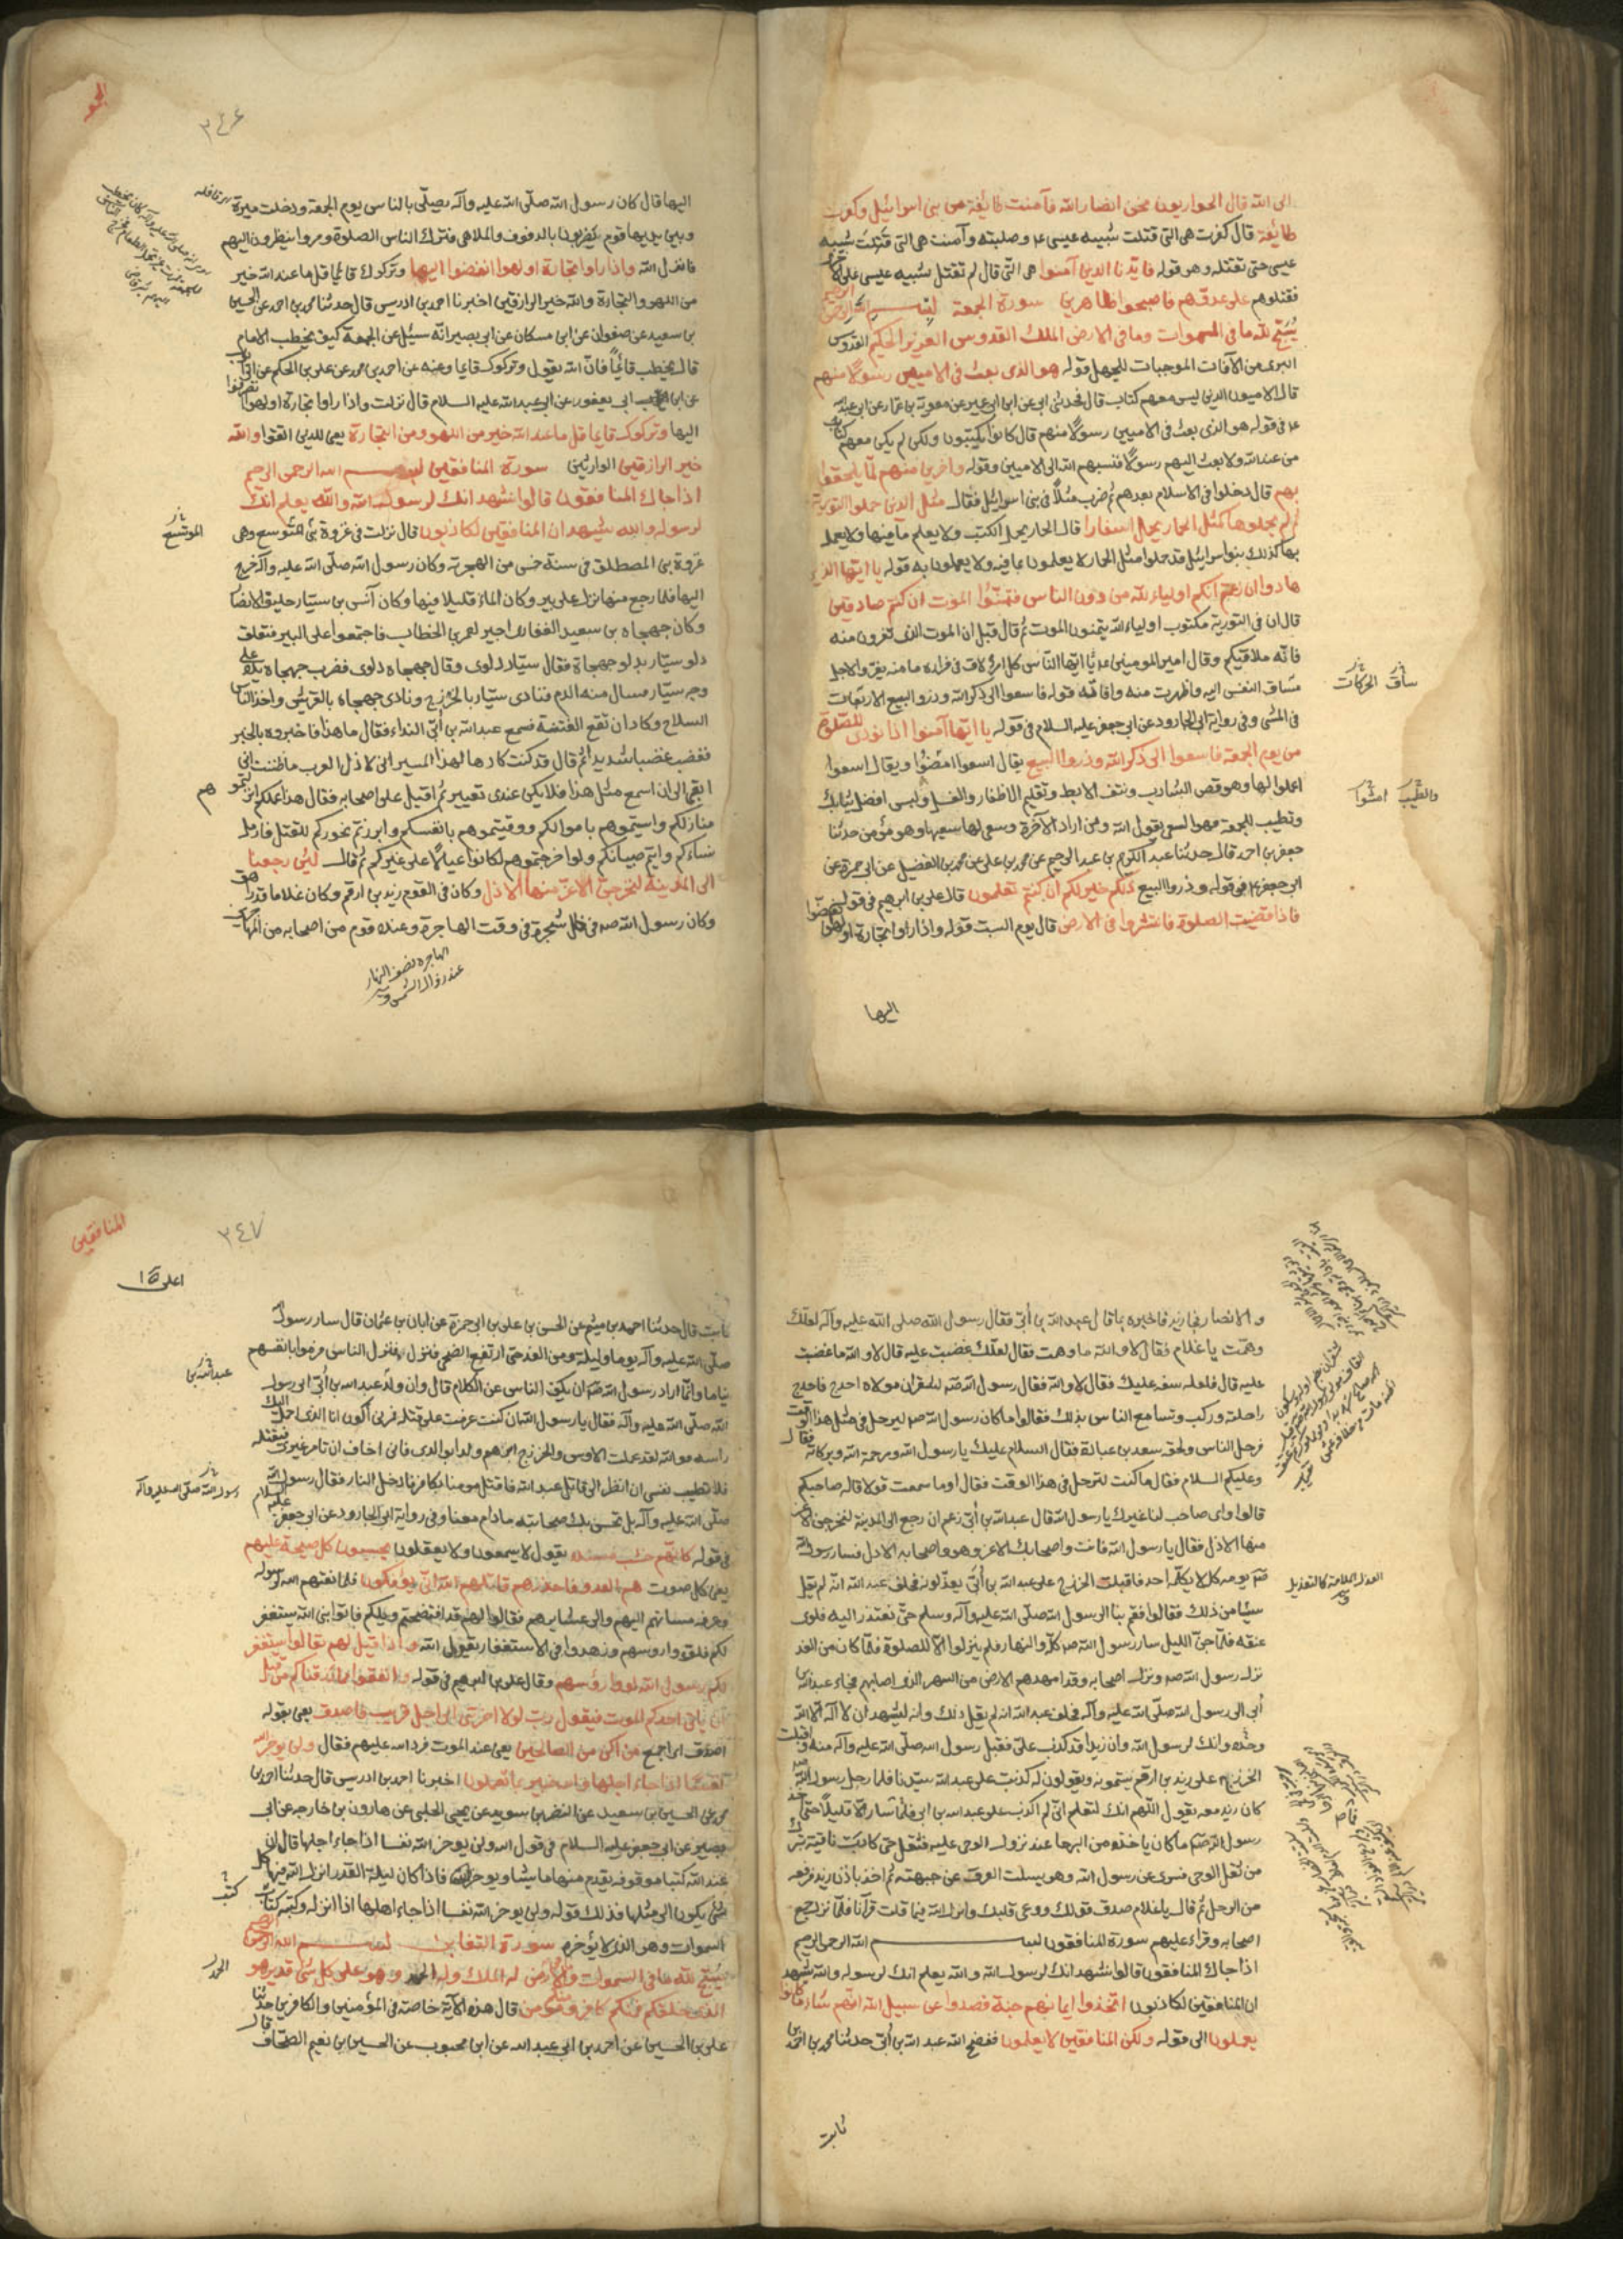 الى الله قال الحواريون نحن انصار الله فآمنت طائفة من بنى اسرائيل وكفرت
طائفة قال كفرت هى التى قتلت شبيه عيسى ع وصلبته وآمنت هى التى قبلت شبيه
عيسى حتى تقتله وهو قوله فايدنا الذين آمنوا هى التى قال لم تقتل شبيه عيسى على
فقتلوهم على عدوهم فاصبحوا ظاهرين سورة الجمعة بسم الله الرحمن الرحيم
يسبح لله ما فى السموات وما فى الارض الملك القدوس العزيز الحكيم القدوس
البرى من الآفات الموجبات للجهل قوله هو الذى بعث فى الاميين رسولا منهم
قال الاميون الذين ليس معهم كتاب قال فحدثنى ابى عن ابن ابى عمير عن معوية بن عمار عن ابى عبد الله
ع فى قوله هو الذى بعث فى الاميين رسولا منهم قال كانوا يكتبون ولكن لم يكن معهم كتاب
من عند الله ولا بعث اليهم رسولا فنسبهم الله الى الاميين وقوله وآخرين منهم لما يلحقوا
بهم قال دخلوا فى الاسلام بعدهم ثم ضرب مثلا فى بنى اسرائيل فقال مثل الذين حملوا التورية
ثم لم يحملوها كمثل الحمار يحمل اسفارا قال الحمار يحمل الكتب ولا يعلم ما فيها ولا يعمل
بها كذلك بنو اسرائيل قد حملوا مثل الحمار لا يعلمون بما فيه ولا يعملون به قوله يا ايها الذين
هادوا ان زعمتم انكم اولياء لله من دون الناس فتمنوا الموت ان كنتم صادقين
قال ان فى التورية مكتوب اولياء الله يتمنون الموت ثم قال قل ان الموت الذى تفرون منه
فانه ملاقيكم وقال امير المومنين ع يا ايها الناس كل امرئ لاق فى فراره ما منه يفر والاجل
مساق النفس اليه والهرب منه وافاته قوله فاسعوا الى ذكر الله وذروا البيع
ساق الحركات
فى المشى وفى رواية ابى الجارود عن ابى جعفر عليه السلام فى قوله يا ايها آمنوا اذا نودى للصلوة
من يوم الجمعة فاسعوا الى ذكر الله وذروا البيع يقال اسعوا امضوا ويقال اسعوا
اعملوا لها وهو قص الشارب ونتف الابط وتقليم الاظفار والغسل ولبس افضل ثيابك
والطيب امشوا
وتطيب للجمعة فهو السعى يقول الله ومن اراد الآخرة وسعى لها سعيها وهو مؤمن حدثنا
جعفر بن احمد قال حدثنا عبد الكريم بن عبد الرحيم عن محمد بن على عن محمد بن الفضيل عن ابى حمزة عن
ابى جعفر ع فى قوله وذروا البيع ذلكم خير لكم ان كنتم تعلمون قال على بن ابرهيم فى قوله
فاذا قضيت الصلوة فانتشروا فى الارض قال يوم السبت قوله واذا راوا تجارة او لهوا انفضوا
اليها
الجمعه
٣٤٦
اليها قال كان رسول الله صلى الله عليه وآله يصلى بالناس يوم الجمعة ودخلت ميرة
وبين يديها قوم يضربون بالدفوف والملاهى فترك الناس الصلوة ومروا ينظرون اليهم
فانزل الله واذا راوا تجارة او لهوا انفضوا اليها وتركوك قائما قل ما عند الله خير
من اللهو والتجارة والله خير الرازقين اخبرنا احمد بن ادريس قال حدثنا محمد بن احمد عن الحسين
بن سعيد عن صفوان عن ابن مسكان عن ابى بصير انه سئل عن الجمعة كيف يخطب الامام
قال يخطب قائما فان الله يقول وتركوك قايما وعنه عن احمد بن محمد عن على بن الحكم عن ابى ايوب
عن ابن ابى يعفور عن ابى عبد الله عليه السلام قال نزلت واذا راوا تجارة او لهوا انصرفوا
اليها وتركوك قايما قل ما عند الله خير من اللهو ومن التجارة يعنى للذين اتقوا والله
خير الرازقين الوارثين سورة المنافقين بسم الله الرحمن الرحيم
اذا جاك المنافقون قالوا نشهد انك لرسول الله والله يعلم انك
لرسوله والله يشهد ان المنافقين لكاذبون قال نزلت فى غزوة بنى المتوسع وهى
المريسيع
غزوة بنى المصطلق فى سنة خمس من الهجرة وكان رسول الله صلى الله عليه وآله خرج
اليها فلما رجع منها نزل على بير وكان الماء قليلا فيها وكان آنس بن سيار حليف الانصار
وكان جهجاه بن سعيد الغفارى اجير لعمر بن الخطاب فاجتمعوا على البير فتعلق
دلو سيار بدلو جهجاه فقال سيار دلوى وقال جهجاه دلوى فضرب جهجاه يده على
وجه سيار فسال منه الدم فنادى سيار بالخزرج ونادى جهجاه بالقريش واخذ الناس
السلاح وكاد ان تقع الفتنة فسمع عبد الله بن أبى النداء فقال ما هذا فاخبروه بالخبر
فغضب غضبا شديدا ثم قال قد كنت كارها لهذا المسير انى لاذل العرب ما ظننت انى
ابقى الى ان اسمع مثل هذا فلا يكن عندى تغيير ثم اقبل على اصحابه فقال هذا عملكم انزلتموهم
منازلكم واسيتموهم باموالكم ووقيتموهم بانفسكم وابرزتم نحوركم للقتل فارمل
نساءكم وايتم صبيانكم ولو اخرجتموهم لكانوا عيالا على غيركم ثم قال لئن رجعنا
الى المدينة ليخرجن الاعز منها الاذل وكان فى القوم زيد بن ارقم وكان غلاما قد راهق
وكان رسول الله ص فى ظل شجرة فى وقت الهاجرة وعنده قوم من اصحابه من المهاجرين
الهاجره نصف النهار
عند زوال الشمس
والانصار فجا زيد فاخبره بما قال عبد الله بن أبى فقال رسول الله صلى الله عليه وآله لعلك
وهمت يا غلام فقال لا والله ما وهمت فقال لعلك غضبت عليه قال لا والله ما غضبت
عليه قال فلعله سفه عليك فقال لا والله فقال رسول الله ص لشقران مولاه احدج فاحدج
راحلته وركب وتسامع الناس بذلك فقالوا ما كان رسول الله ص ليرحل فى مثل هذا الوقت
فرحل الناس ولحقه سعد بن عبادة فقال السلام عليك يا رسول الله ورحمة الله وبركاته فقال
وعليكم السلام فقال ما كنت لترحل فى هذا الوقت فقال اوما سمعت قولا قال صاحبكم
قالوا واى صاحب لنا غيرك يا رسول الله قال عبد الله بن أبى زعم ان رجع الى المدينة ليخرجن الاعز
منها الاذل فقال يا رسول الله فانت واصحابك الاعز وهو واصحابه الاذل فسار رسول الله
ص يومه كله لا يكلمه احد فاقبلت الخزرج على عبد الله بن أبى يعذلونه فحلف عبد الله انه لم يقل
العذل الملامة كالتعذيل
شيئا من ذلك فقالوا فقم بنا الى رسول الله صلى الله عليه وآله وسلم حتى نعتذر اليه فلوى
عنقه فلما جن الليل سار رسول الله ص كله والنهار فلم ينزلوا الا للصلوة فلما كان من الغد
نزل رسول الله ص ونزل اصحابه وقد امهدهم الارض من السهر الذى اصابهم فجاء عبد الله بن
أبى الى رسول الله صلى الله عليه وآله فحلف عبد الله انه لم يقل ذلك وانه ليشهد ان لا اله الا الله
وحده وانك لرسول الله وان زيدا قد كذب على فقبل رسول الله صلى الله عليه وآله منه واقبلت
الخزرج على زيد بن ارقم يشتمونه ويقولون له كذبت على عبد الله سيدنا فلما رحل رسول الله ص
كان زيد معه يقول اللهم انك لتعلم انى لم اكذب على عبد الله بن ابى فلما سار الا قليلا حتى اخذ
رسول الله ص ما كان ياخذه من البرحا عند نزول الوحى عليه فثقل حتى كادت ناقته تبرك
من ثقل الوحى فسرى عن رسول الله وهو يسلت العرق عن جبهته ثم اخذ باذن زيد فرفعه
من الرحل ثم قال يا غلام صدق قولك ووعى قلبك وانزل الله فيما قلت قرآنا فلما نزل جمع
اصحابه وقراء عليهم سورة المنافقون بسم الله الرحمن الرحيم
اذا جاك المنافقون قالوا نشهد انك لرسول الله والله يعلم انك لرسوله والله يشهد
ان المنافقين لكاذبون اتخذوا ايمانهم جنة فصدوا عن سبيل الله انهم ساء ما كانوا
يعملون الى قوله ولكن المنافقين لا يعلمون ففضح الله عبد الله بن أبى حدثنا محمد بن احمد بن
ثابت
المنافقين
٣٤٧
ثابت قال حدثنا احمد بن ميثم عن الحسن بن على بن ابى حمزة عن ابان بن عثمان قال سار رسول الله
صلى الله عليه وآله يوما وليلة ومن الغد حتى ارتفع الضحى فنزل فنزل الناس فرموا بانفسهم
نياما وانما اراد رسول الله ص ان يكف الناس عن الكلام قال وان ولد عبد الله بن أبى اتى رسول
عبد الله بن
الله صلى الله عليه وآله فقال يا رسول الله ان كنت عزمت على قتله فمرنى اكون انا الذى احمل اليك
راسه فوالله لقد علمت الاوس والخزرج انى ابرهم ولدا بوالدى فانى اخاف ان تامر غيرى فيقتله
فلا تطيب نفسى ان انظر الى قاتل عبد الله فاقتل مومنا بكافر فادخل النار فقال رسول الله
رسول الله صلى الله عليه وآله
صلى الله عليه وآله بل تحسن لك صحابته ما دام معنا وفى رواية ابى الجارود عن ابى جعفر عليه السلام
فى قوله كانهم خشب مسندة يقول لا يسمعون ولا يعقلون يحسبون كل صيحة عليهم
يعنى كل صوت هم العدو فاحذرهم قاتلهم الله انى يؤفكون فلما نعتهم الله لرسوله
وعرفه مساتهم اليهم والى عشايرهم فقالوا لهم قد افتضحتم ويلكم فاتوا نبى الله يستغفر
لكم فلووا روسهم وزهدوا فى الاستغفار يقول الله واذا قيل لهم تعالوا يستغفر
لكم رسول الله لووا رؤسهم وقال على بن ابرهيم فى قوله وانفقوا مما رزقناكم من قبل
ان ياتى احدكم الموت فيقول رب لولا اخرتنى الى اجل قريب فاصدق يعنى بقوله
اصدق اى احج واكن من الصالحين يعنى عند الموت فرد الله عليهم فقال ولن يوخر الله
نفسا اذا جاء اجلها والله خبير بما تعملون اخبرنا احمد بن ادريس قال حدثنا احمد بن
محمد عن الحسين بن سعيد عن النضر بن سويد عن يحيى الحلبى عن هارون بن خارجه عن ابى
بصير عن ابى جعفر عليه السلام فى قول الله ولن يوخر الله نفسا اذا جاء اجلها قال ان
عند الله كتبا موقوفه يقدم منها ما يشا ويوخر فاذا كان ليلة القدر انزل الله فيها كل
شئ يكون الى مثلها فذلك قوله ولن يوخر الله نفسا اذا جاء اجلها اذا انزله وكتبه كتاب
السموات وهو الذى لا يؤخره سورة التغابن بسم الله الرحمن الرحيم
يسبح لله ما فى السموات وما فى الارض له الملك وله الحمد وهو على كل شئ قدير هو
الذى خلقكم فمنكم كافر ومنكم مؤمن قال هذه الآية خاصة فى المؤمنين والكافرين حدثنا
على بن الحسين عن احمد بن ابى عبد الله عن ابن محبوب عن الحسين بن نعيم الصحاف قال